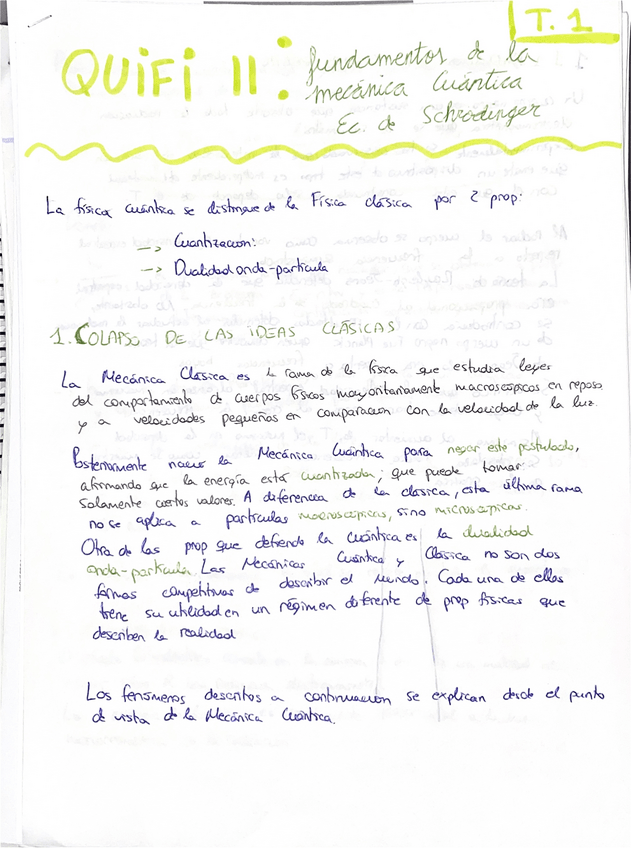 T. 1
QUIFI II: fundamentos de la
mecánica Cuántica
Ec. de Schrödinger
La física cuántica se distingue de la Física clásica por 2 prop:
-> Cuantización:
-> Dualidad onda-partícula
1. COLAPSO DE LAS IDEAS CLÁSICAS
La Mecánica Clásica es la rama de la física que estudia leyes
del comportamiento de cuerpos físicos mayoritariamente macroscópicos en reposo
y a velocidades pequeñas en comparación con la velocidad de la luz.
Posteriormente nace la Mecánica Cuántica para negar este postulado,
afirmando que la energía está cuantizada; que puede tomar
solamente ciertos valores. A diferencia de la clásica, esta última rama
no se aplica a partículas macroscópicas, sino microscópicas.
Otra de las prop que defiende la cuántica es la dualidad
onda-partícula. Las Mecánicas Cuántica y Clásica no son dos
formas competitivas de describir el mundo. Cada una de ellas
tiene su utilidad en un régimen diferente de prop físicas que
describen la realidad
Los fenómenos descritos a continuación se explican desde el punto
de vista de la Mecánica Cuántica.